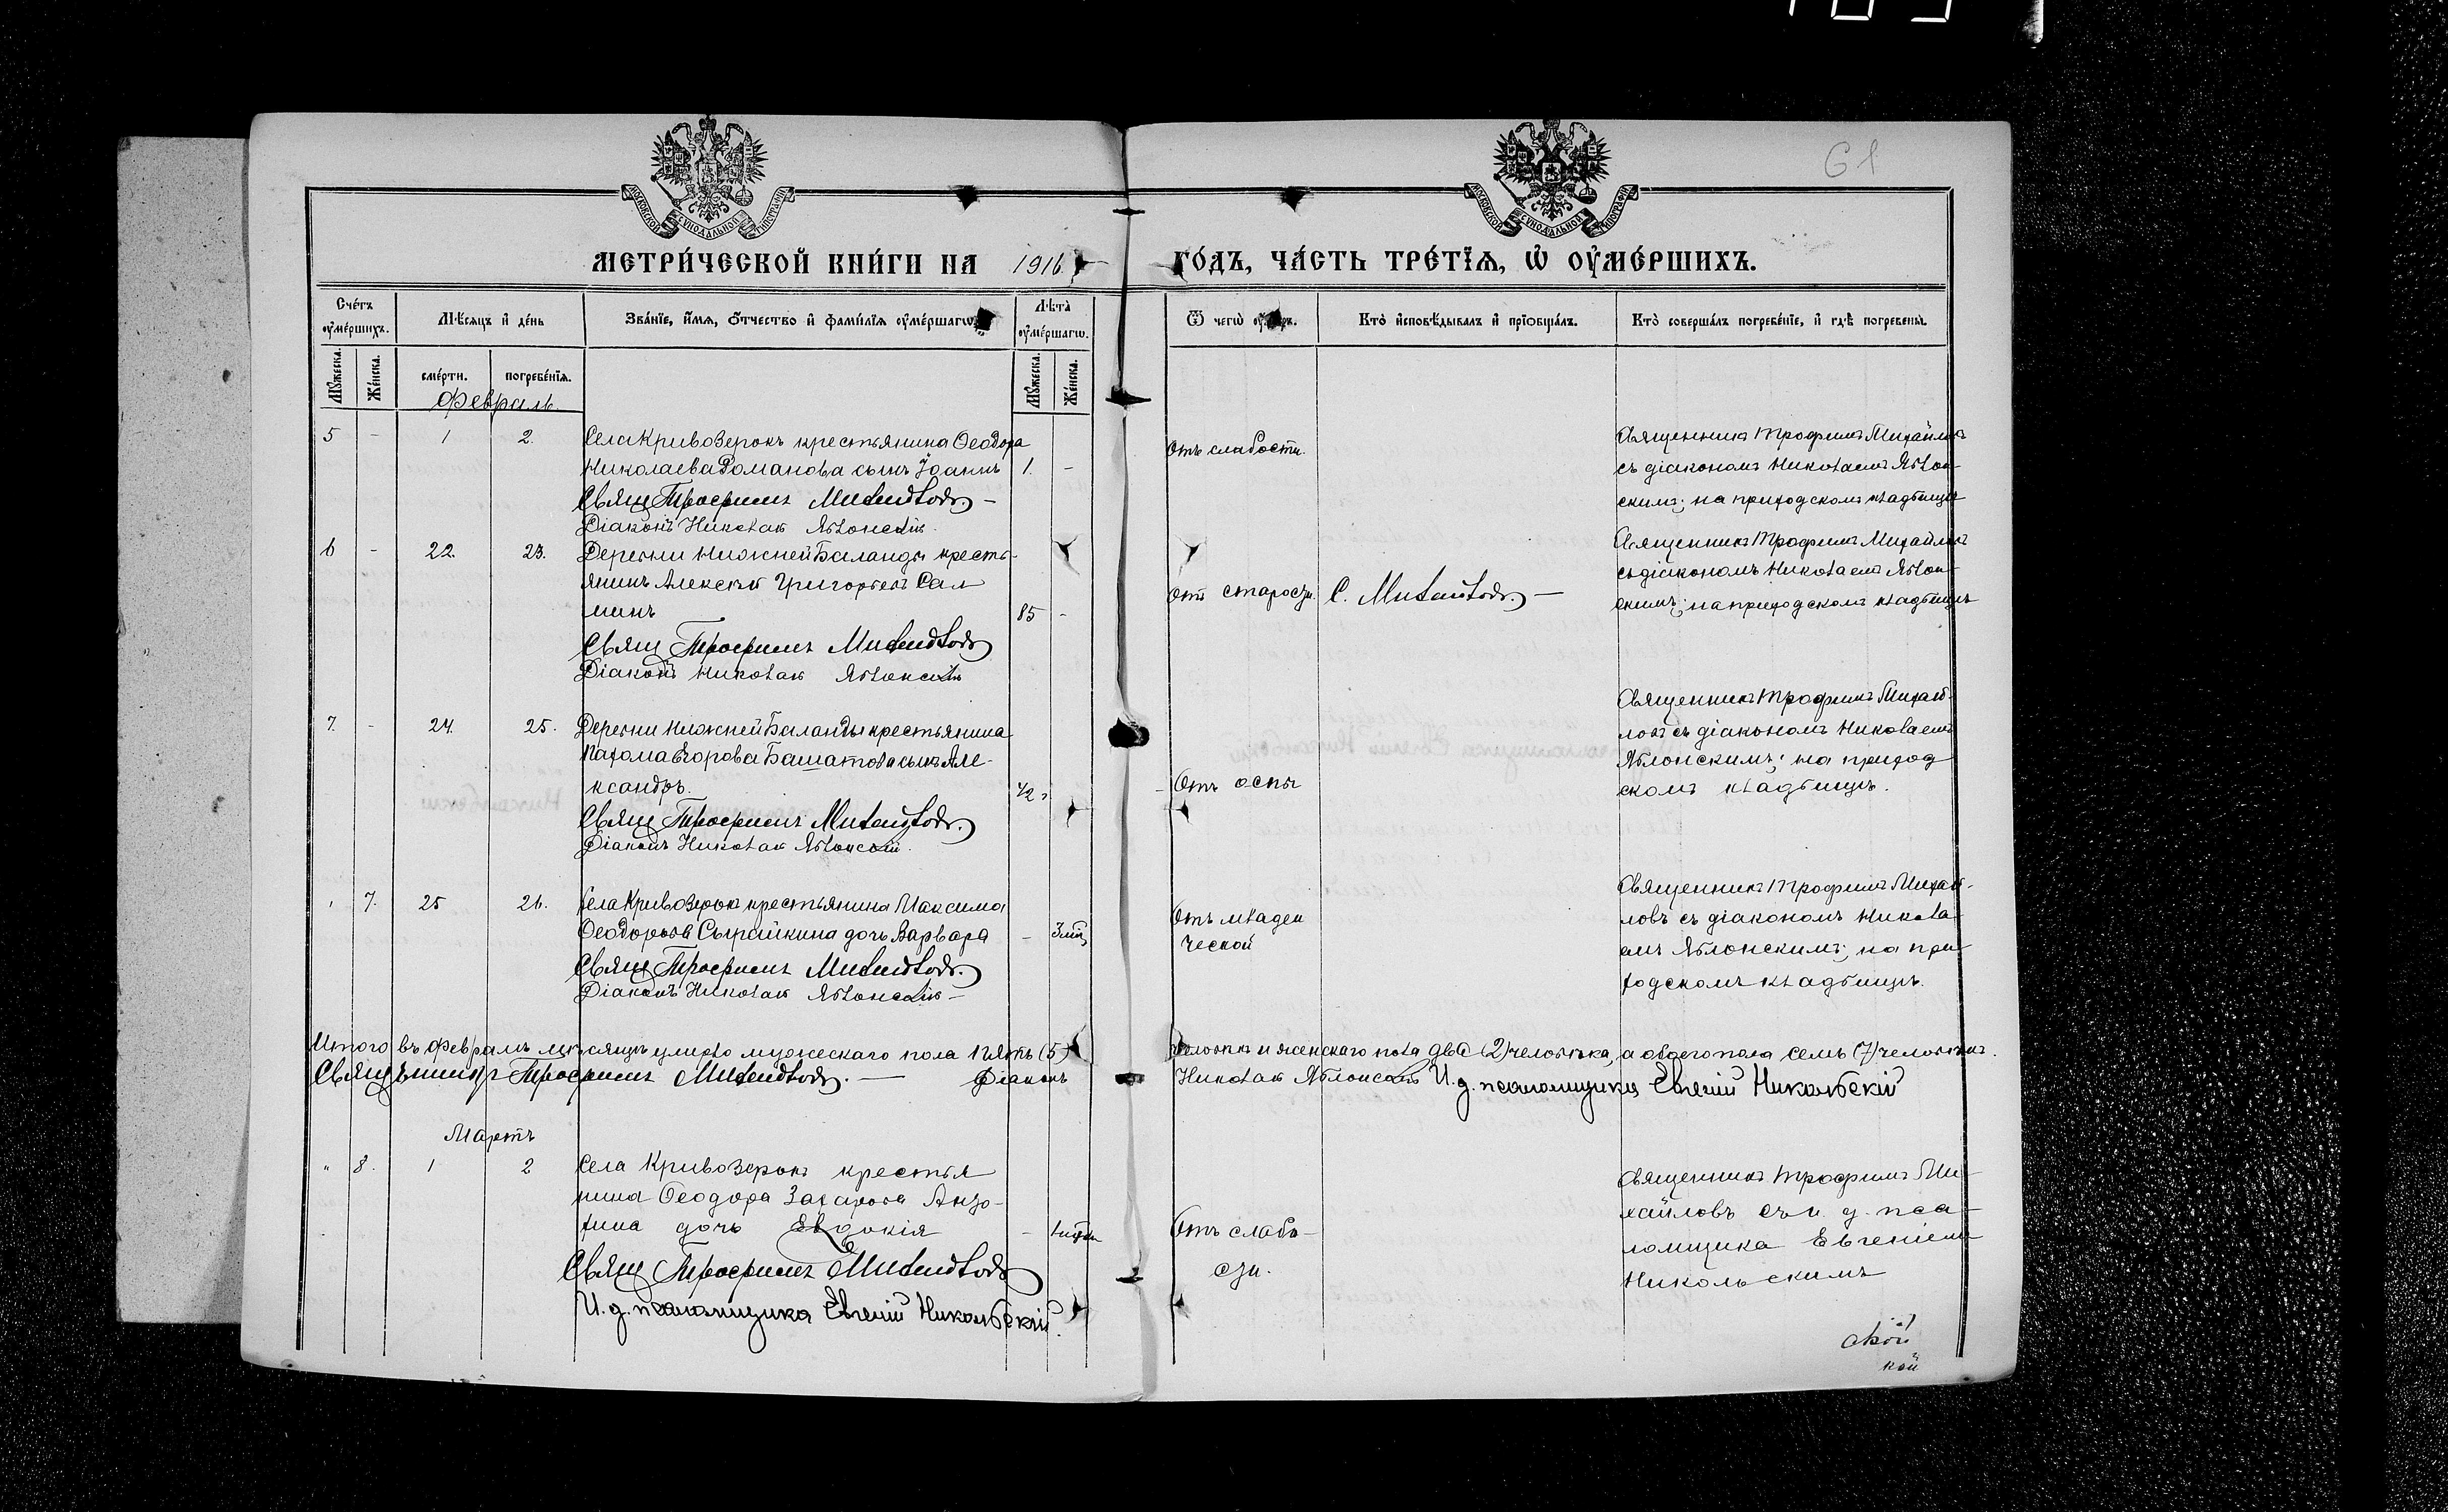 61
МОСКОВСКОЙ СУНОДАЛЬНОЙ ТИПОГРАФІИ
МОСКОВСКОЙ СУНОДАЛЬНОЙ ТИПОГРАФІИ
МЕТРИ́ЧЕСКОЙ КНИ́ГИ НА 1916 ГО́ДЪ, ЧА́СТЬ ТРЕ́ТІѦ, Ѡ҆ ОУ҆МЕ́РШИХЪ.
Сче́тъ оу҆ме́ршихъ.
Мѣ́сѧцъ и҆ де́нь
Зва́нїе, и҆́мѧ, ѻ҆́тчество и҆ фами́лїѧ оу҆ме́ршагѡ
Лѣ́та оу҆ме́ршагѡ.
Ѿ чегѡ̀
Кто̀ и҆сповѣ́дывалъ и҆ прїѡбща́лъ.
Кто̀ соверша́лъ погребе́нїе, и҆ гдѣ̀ погребены̀.
Мꙋ́жеска.
Же́нска.
сме́рти.
погребе́нїѧ.
Мꙋ́жеска.
Же́нска.
Февраль.
5 - 1 2. Села Кривозерокъ крестьянина Ѳеодора
Николаева Романова сынъ Іоаннъ 1. -
Свящ Трофимъ Михайловъ. -
Діаконъ Николай Яблонскій.
Отъ слабости.
Священникъ Трофимъ Михайловъ
съ діакономъ Николаемъ Яблон-
скимъ; на приходскомъ кладбищѣ
6 - 22. 23. Деревни Нижней Баланды кресть-
янинъ Алексѣй Григорьевъ Сал
минъ 85 -
Свящ Трофимъ Михайловъ
Діаконъ Николай Яблонскій
отъ старости. С. Михайловъ. -
Священникъ Трофимъ Михайловъ
съ діакономъ Николаемъ Яблон-
скимъ; на приходскомъ кладбищѣ
7. - 24. 25. Деревни Нижней Баланды крестьянина
Пахома Егорова Башатова сынъ Але-
ксандръ. 1/2
Свящ Трофимъ Михайловъ.
Діаконъ Николай Яблонскій.
Отъ оспы
Священникъ Трофимъ Михай-
ловъ съ діакономъ Николаемъ
Яблонскимъ; на приход
скомъ кладбищѣ.
7. 25 26. Села Кривозерокъ крестьянина Максима
Ѳеодорова Сырайкина дочь Варвара -
Свящ Трофимъ Михайловъ.
Діаконъ Николай Яблонскій -
Отъ младен
ческой
Священникъ Трофимъ Михай-
ловъ съ діакономъ Никола-
емъ Яблонскимъ; на при
ходскомъ кладбищѣ.
Итого въ февралѣ мѣсяцѣ умерло мужескаго пола пять (5) человѣкъ и женскаго пола два (2) человѣка, а обоего пола семь (7) человѣкъ.
Священникъ Трофимъ Михайловъ. - Діаконъ Николай Яблонскій И. д. псаломщика Евгеній Никольскій
Мартъ
" 8. 1 2 Села Кривозерокъ крестья
нина Ѳеодора Захарова
дочь Евдокія -
Свящ Трофимъ Михайловъ
И. д. псаломщика Евгеній Никольскій.
Отъ слабо-
сти.
Священникъ Трофимъ Ми-
хайловъ съ и. д. пса-
ломщика Евгеніемъ
Никольскимъ